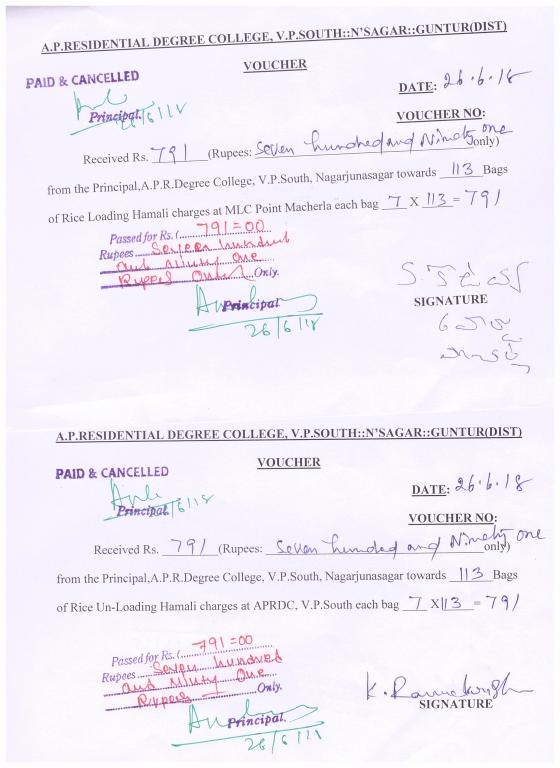 A.P.RESIDENTIAL DEGREE COLLEGE, V.P.SOUTH::N'SAGAR::GUNTUR(DIST)
VOUCHER
PAID & CANCELLED
DATE: 26.6.18
Principal.
26/6/18
VOUCHER NO:
Received Rs. 791 (Rupees: Seven hundred and Ninety one only)
from the Principal,A.P.R.Degree College, V.P.South, Nagarjunasagar towards 113 Bags
of Rice Loading Hamali charges at MLC Point Macherla each bag 7 X 113 = 791
Passed for Rs. (791=00
Rupees Seven hundred
and Ninty One
Rupees Only. Only.
Principal
26/6/18
SIGNATURE
A.P.RESIDENTIAL DEGREE COLLEGE, V.P.SOUTH::N'SAGAR::GUNTUR(DIST)
VOUCHER
PAID & CANCELLED
DATE: 26.6.18
Principal.
26/6/18
VOUCHER NO:
Received Rs. 791 (Rupees: Seven hundred and Ninety one only)
from the Principal,A.P.R.Degree College, V.P.South, Nagarjunasagar towards 113 Bags
of Rice Un-Loading Hamali charges at APRDC, V.P.South each bag 7 X113 = 791
Passed for Rs. (791=00
Rupees Seven hundred
and Ninty One
Rupees Only.
Principal.
26/6/18
SIGNATURE